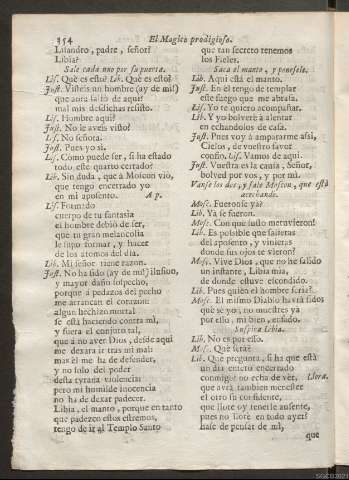 354
El Magico prodigioso.
Lisandro, padre, señor?
Libia?
Sale cada uno por su puerta.
Lis. Què es esto? Lib. Què es esto?
Just. Visteis un hombre (ay de mi!)
que aora saliò de aqui?
mal mis desdichas resisto.
Lis. Hombre aqui?
Just. No le aveis visto?
Lis. No señora.
Just. Pues yo si.
Lis. Como puede ser, si ha estado
todo este quarto cerrado?
Lib. Sin duda, que à Moscon viò,
que tengo encerrado yo
en mi aposento. Ap.
Lis. Formado
cuerpo de tu fantasia
el hombre debiò de ser,
que tu gran melancolia
le supo formar, y hacer
de los atomos del dia.
Lib. Mi señor tiene razon.
Just. No ha sido (ay de mi!) ilusion,
y mayor daño sospecho,
porque à pedazos del pecho
me arrancan el corazon:
algun hechizo mortal
se està haciendo contra mi,
y fuera el conjuro tal,
que à no aver Dios, desde aqui
me dexàra ir tras mi mal:
mas èl me ha de defender,
y no solo del poder
desta tyrana violencia;
pero mi humilde inocencia
no ha de dexar padecer.
Libia, el manto, porque en tanto
que padezco estos estremos,
tengo de ir al Templo Santo
que tan secreto tenemos
los Fieles.
Saca el manto, y ponesele.
Lib. Aqui està el manto.
Just. En èl tengo de templar
este fuego que me abrasa.
Lis. Yo te quiero acompañar.
Lib. Y yo bolverè à alentar
en echandolos de casa.
Just. Pues voy à ampararme asi,
Cielos, de vuestro favor
confio. Lis. Vamos de aqui.
Just. Vuestra es la causa, Señor,
bolved por vos, y por mì.
Vanse los dos, y sale Moscon, que està
acechando.
Mosc. Fueronse ya?
Lib. Ya se fueron.
Mosc. Con què susto me tuvieron!
Lib. Es posible que salieras
del aposento, y vinieras
donde sus ojos te vieron?
Mosc. Vive Dios, que no he salido
un instante, Libia mia,
de donde estuve escondido.
Lib. Pues quièn el hombre seria?
Mosc. El mismo Diablo havrà sido:
què se yo, no muestres ya
por esso, mi bien, enfado.
Suspira Libia.
Lib. No es por esso.
Mosc. Què serà?
Lib. Què pregunta, si ha que està
un dia entero encerrado
conmigo! no echa de vèr, Llora.
que avrà tambien menester
el otro su confidente,
que llore oy tenerle ausente,
pues no llorè en todo ayer?
hase de pensar de mi,
que